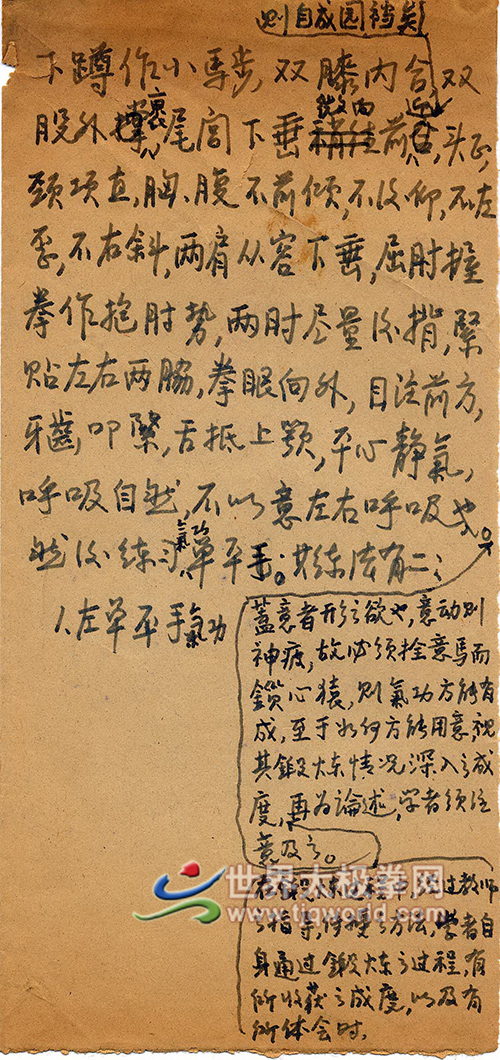 则自成园裆矣
下蹲作小马步,双膝内合,双
股外掌裹,尾闾下垂前
头正,
颈项直,胸、腹不前倾,不后仰,不左
歪,不右斜,两肩从容下垂,屈肘握
拳作抱肘势,两肘尽量后揹,紧
贴左右两胁,拳眼向外,目注前方,
牙齿叩紧,舌抵上颚,平心静氣,
呼吸自然,不以意左右呼吸也。
然后练习氣功单平手。其练法有二:
1.左单平手氣功
蓋意者形之欲也,意动则
神疲,故必须拴意马而
鎖心猿,则氣功方能有
成,至于如何方能用意,视
其鍛炼情况深入之成
度,再为論述,学者须注
意及之。
在鍛炼过程中,经过教师
之指导,传授之方法,学者自
身通过鍛炼之过程,有
所收获之成度,以及有
所体会时,
世界太极拳网
www.tjqworld.com